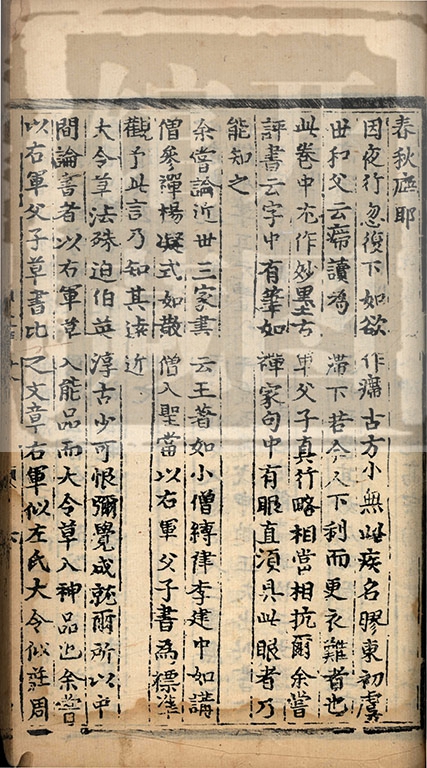 春秋應耶
因夜行忽復下如欲作㿃古方小無此疾名膠東初虞
世和父云㿃讀為滯下若今人下利而更衣難者也
此卷中尤作妙墨右軍父子真行略相當相抗爾余嘗
評書云字中有筆如禪家句中有眼直須具此眼者乃
能知之
余嘗論近世三家書云王著如小僧縛律李建中如講
僧參禪楊凝式如散僧入聖當以右軍父子書為標準
觀予此言乃知其遠近
大令草法殊迫伯英淳古少可恨彌覺成就爾所以中
間論書者以右軍草入能品而大令草入神品也余嘗
以右軍父子草書比之文章右軍似左氏大令似莊周